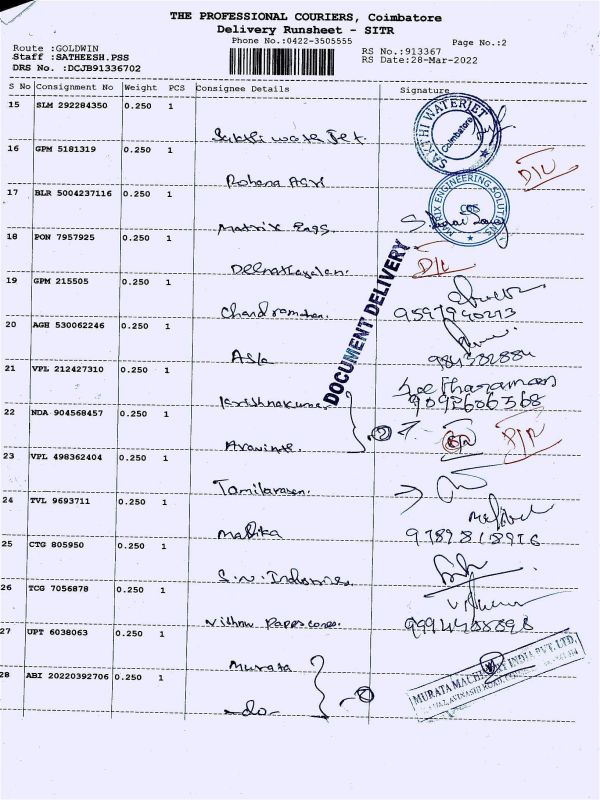 THE PROFESSIONAL COURIERS, Coimbatore
Delivery Runsheet - SITR
Phone No.:0422-3505555
Page No.:2
Route :GOLDWIN
Staff :SATHEESH.PSS
DRS No. :DCJB91336702
RS No.:913367
RS Date:28-Mar-2022
S No Consignment No Weight PCS Consignee Details Signature
15 SLM 292284350 0.250 1
Sakthi water Jet
SAKTHI WATERJET Coimbatore
16 GPM 5181319 0.250 1
Rohana
17 BLR 5004237116 0.250 1
Matrix Engg
MATRIX ENGINEERING SOLUTIONS
18 PON 7957925 0.250 1
Deenathayalan
D/L
19 GPM 215505 0.250 1
Chandramohan
DOCUMENT DELIVERY
20 AGH 530062246 0.250 1
21 VPL 212427310 0.250 1
Krishnakumar
22 NDA 904568457 0.250 1
Aravinth
23 VPL 498362404 0.250 1
Tamilarasan
24 TVL 9693711 0.250 1
Mallika
25 CTG 805950 0.250 1
S.N. Industries
26 TCG 7056878 0.250 1
27 UPT 6038063 0.250 1
Murata
28 ABI 20220392706 0.250 1
-do-
MURATA MACHINERY INDIA PVT. LTD.